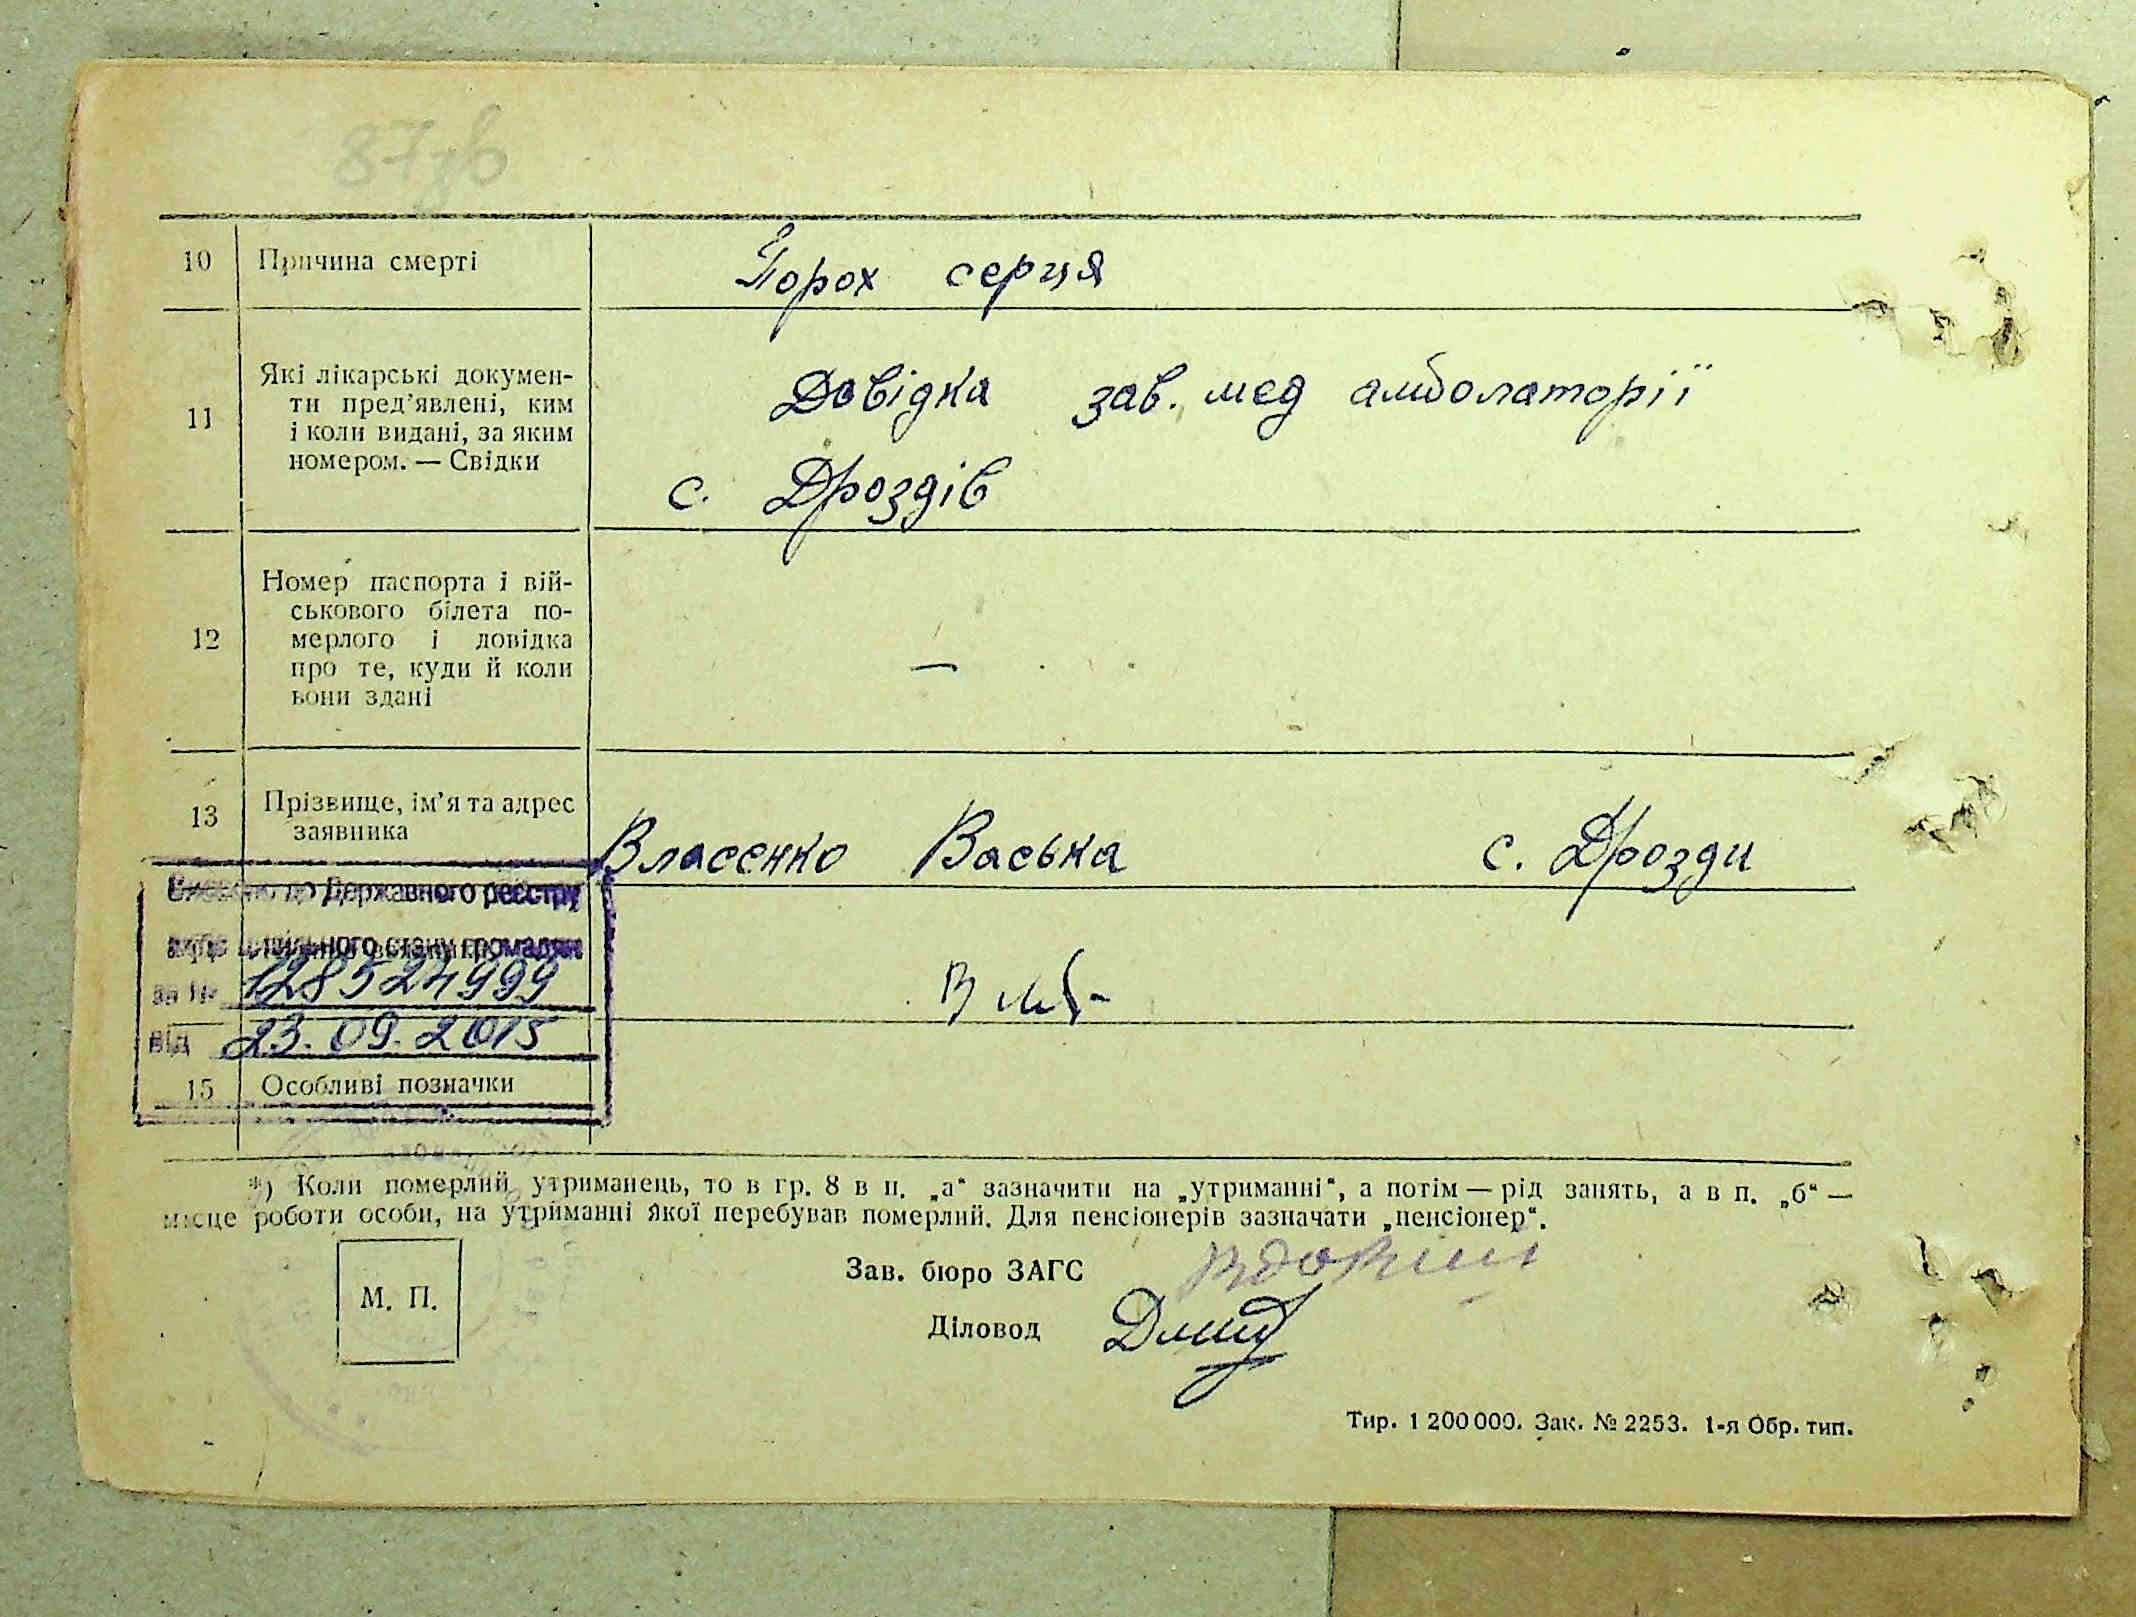 87зв
10 Причина смерті Порох серця
11 Які лікарські докумен-
ти пред’явлені, ким
і коли видані, за яким
номером. — Свідки
Довідка зав. мед амболаторії
с. Дроздів
12 Номер паспорта і вій-
ськового білета по-
мерлого і довідка
про те, куди й коли
вони здані
—
13 Прізвище, ім’я та адрес
заявника
Власенко Васька с. Дрозди
Внесено до Державного реєстру
актів цивільного стану громадян
за № 128524999
від 23.09.2015
15 Особливі позначки
*) Коли померлий утриманець, то в гр. 8 в п. „а“ зазначити на „утриманні“, а потім — рід занять, а в п. „б“ —
місце роботи особи, на утриманні якої перебував померлий. Для пенсіонерів зазначати „пенсіонер“.
М. П.
Зав. бюро ЗАГС
Діловод
Тир. 1 200 000. Зак. № 2253. 1-я Обр. тип.